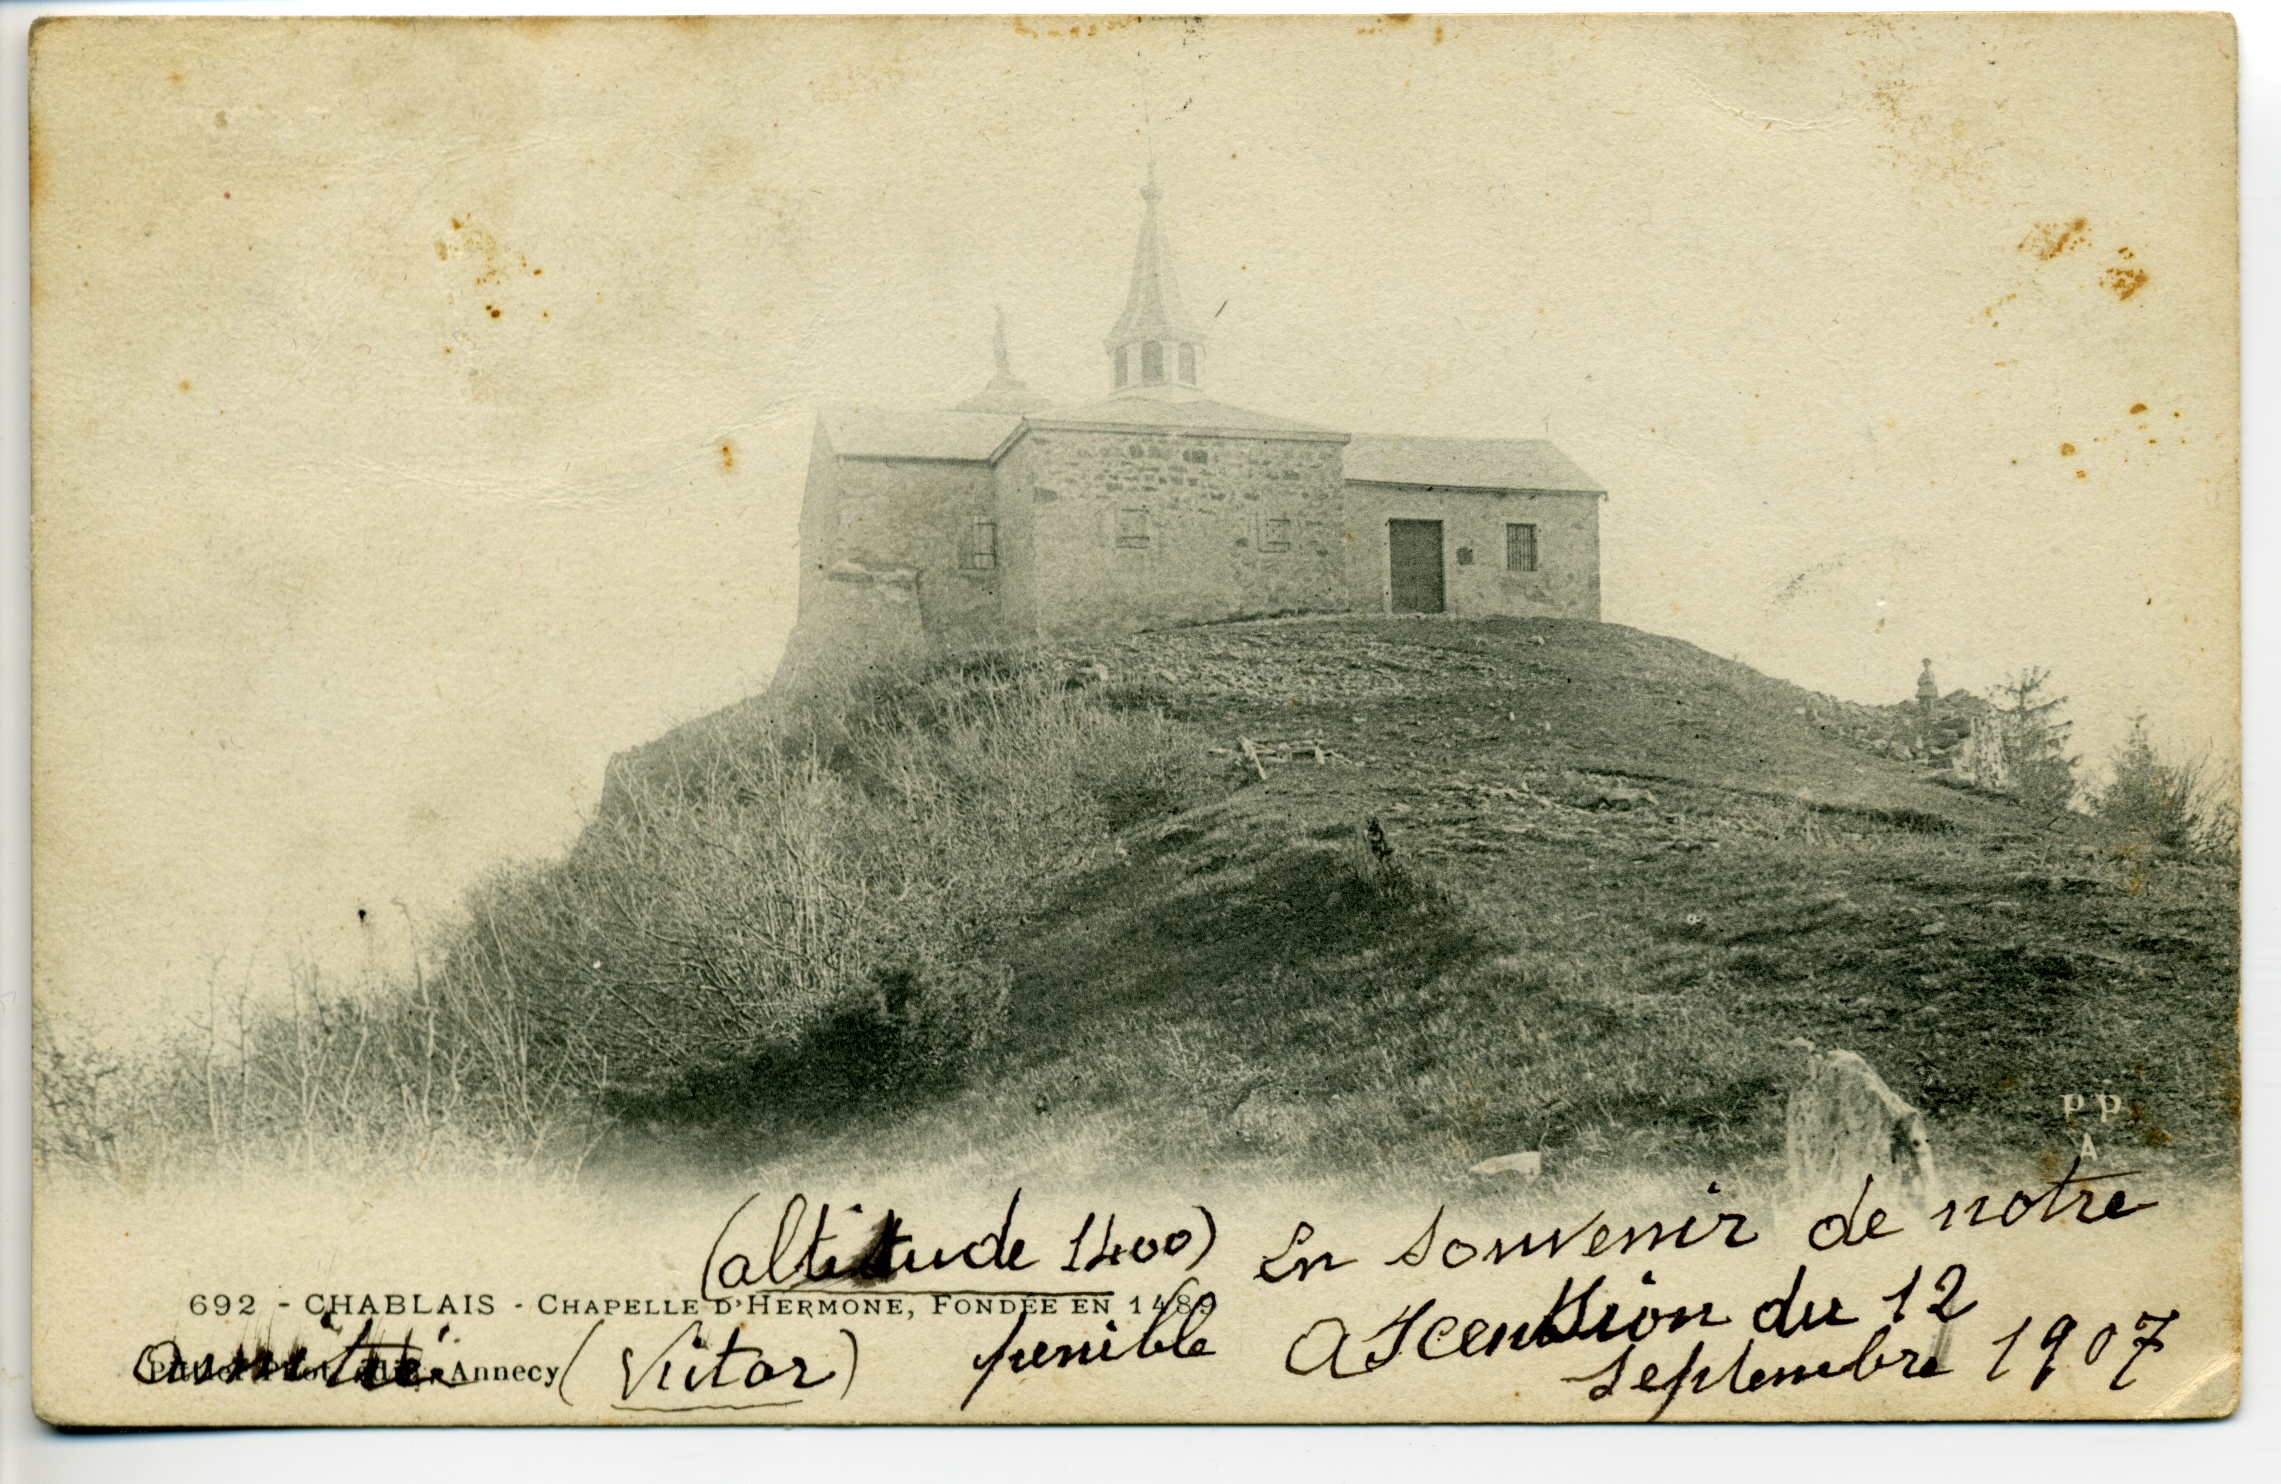 PP
A
(altitude 1400) En souvenir de notre
692 - CHABLAIS - CHAPELLE D'HERMONE, FONDÉE EN 1489
penible ascension du 12
septembre 1907
amitié (Victor)
Annecy